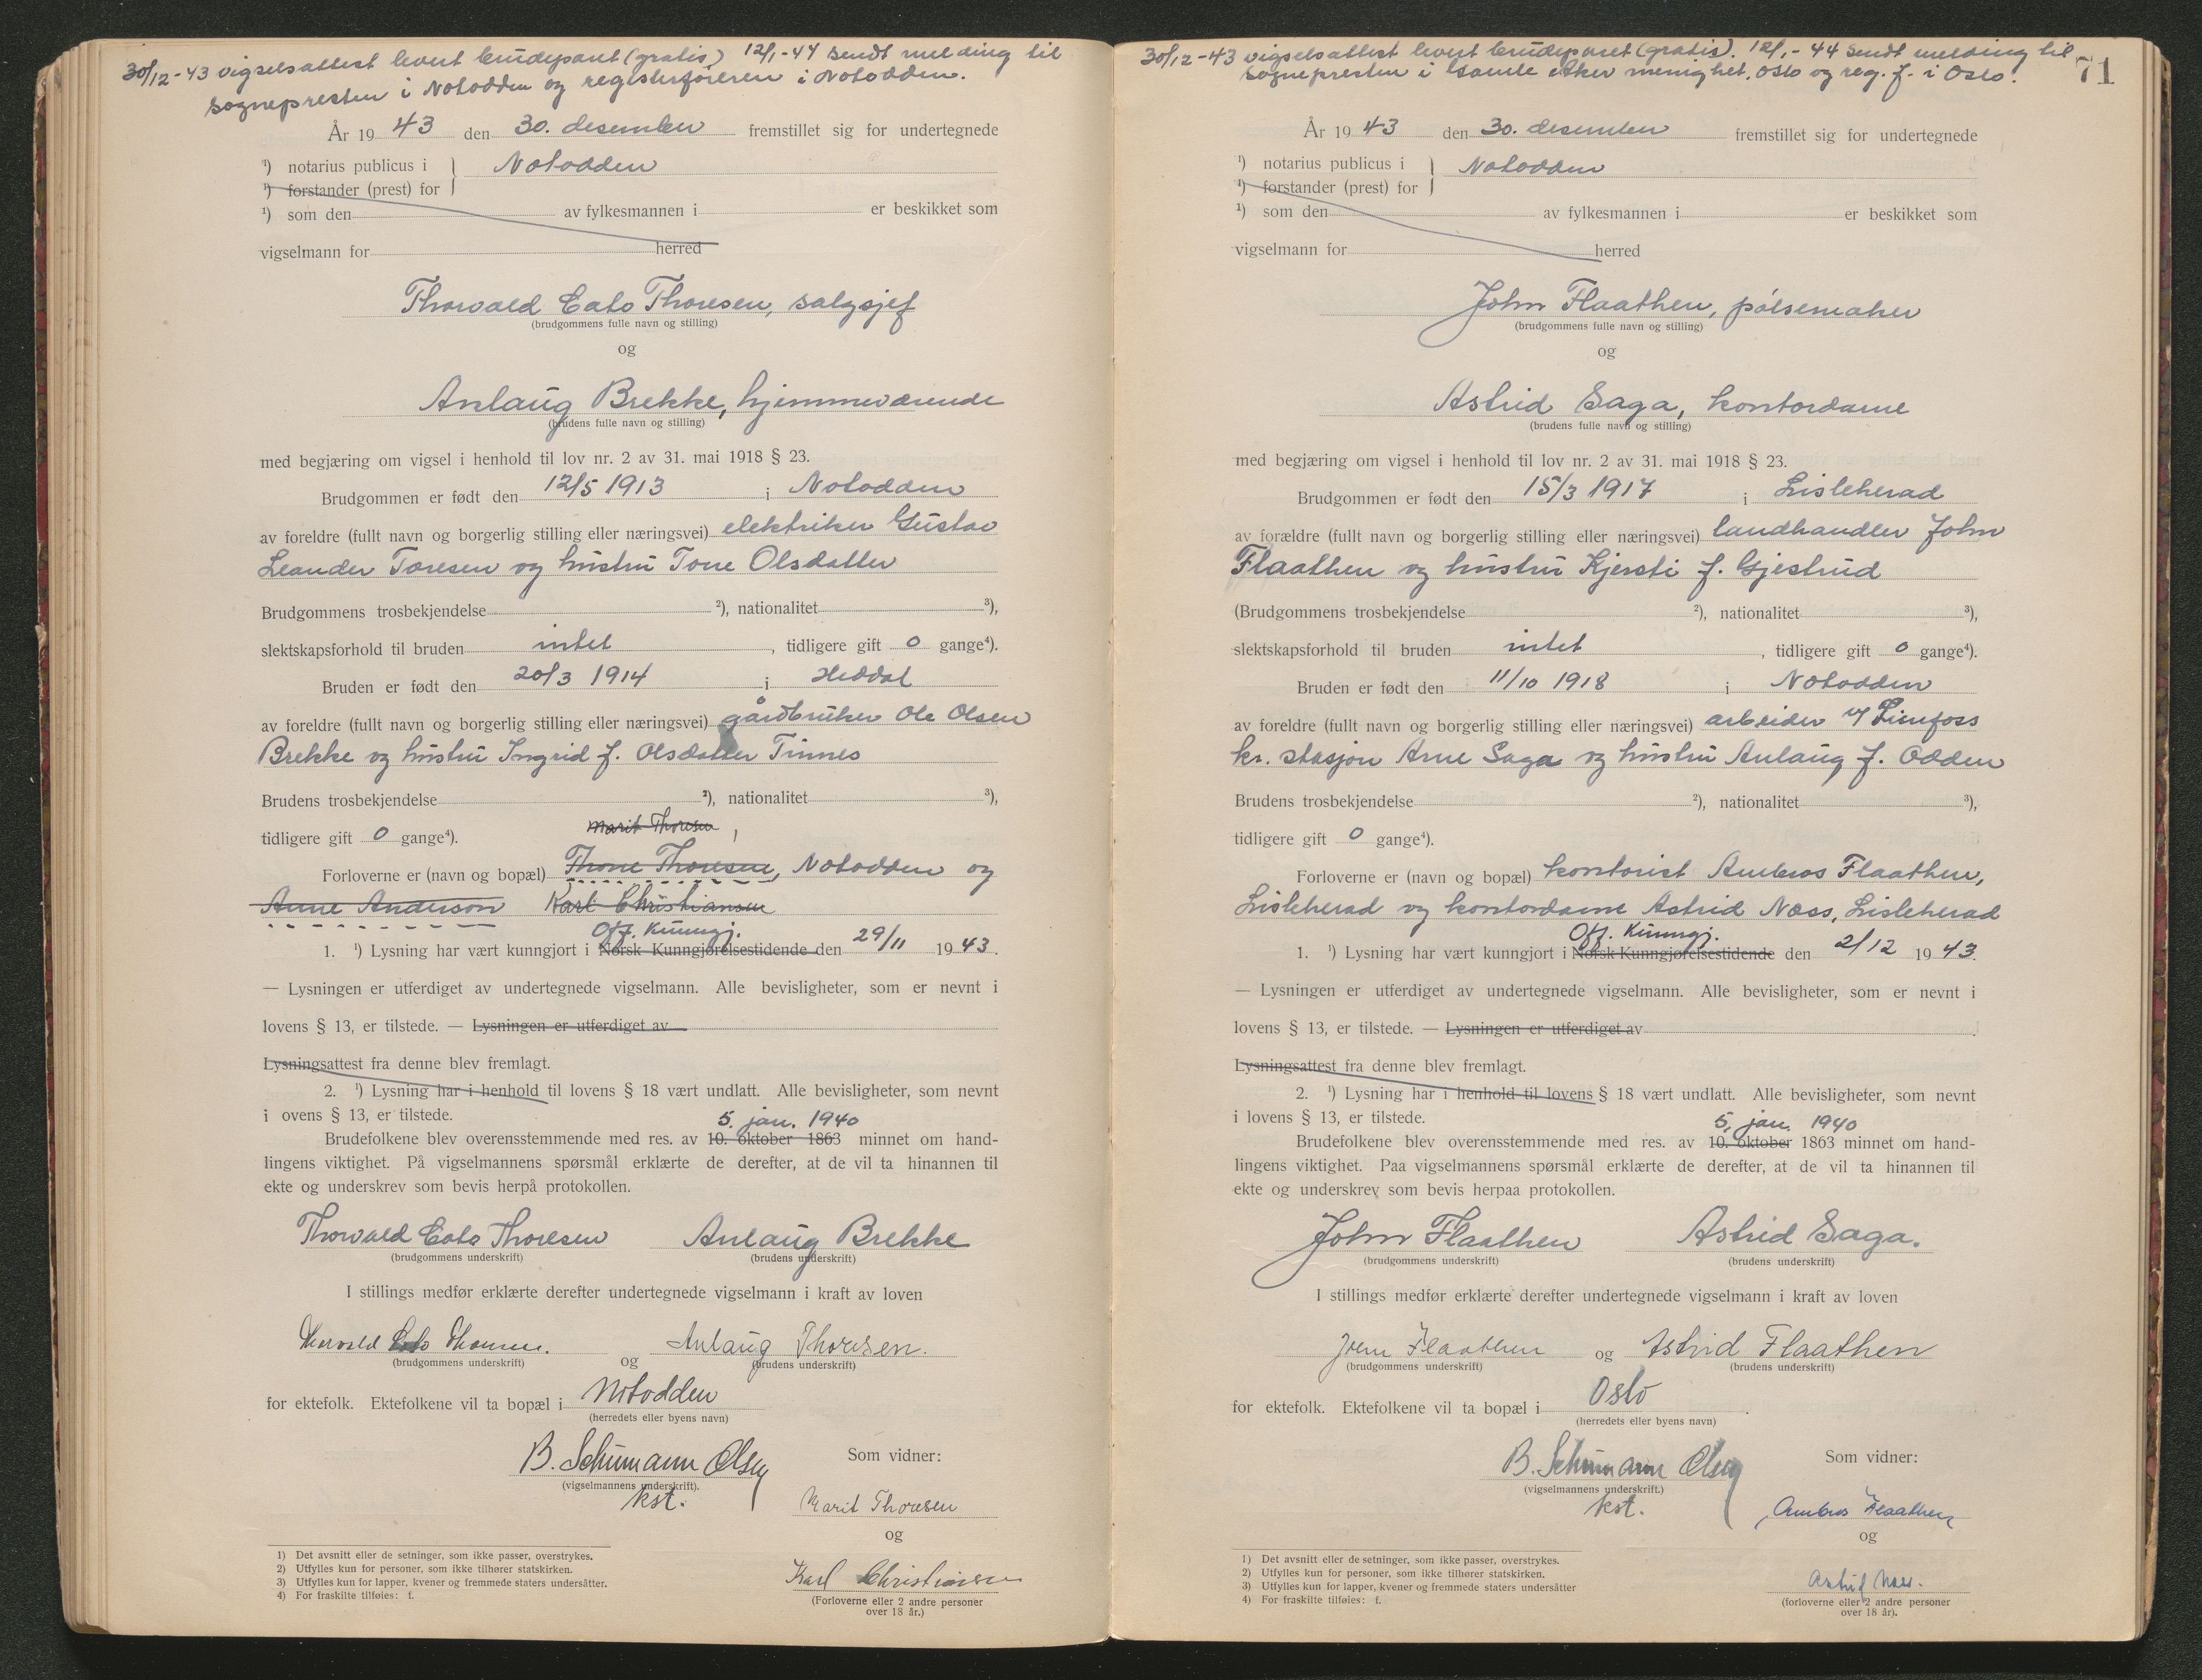 30/12-43 vigselsattest levert brudeparet (gratis) 12/1-44 sendt melding til
sognepresten i Notodden og registerføreren i Notodden.
År 1943 den 30. desember fremstillet sig for undertegnede
¹) notarius publicus i } Notodden
¹) forstander (prest) for
¹) som den av fylkesmannen i er beskikket som
vigselmann for herred
Thorvald Cato Thoresen, salgsjef
(brudgommens fulle navn og stilling)
og
Anlaug Brekke, hjemmeværende
(brudens fulle navn og stilling)
med begjæring om vigsel i henhold til lov nr. 2 av 31. mai 1918 § 23.
Brudgommen er født den 12/5 1913 i Notodden
av foreldre (fullt navn og borgerlig stilling eller næringsvei) elektriker Gustav
Leander Toresen og hustru Tone Olsdatter
Brudgommens trosbekjendelse ²), nationalitet ³),
slektskapsforhold til bruden intet, tidligere gift 0 gange⁴).
Bruden er født den 20/3 1914 i Heddal
av foreldre (fullt navn og borgerlig stilling eller næringsvei) gårdbruker Ole Olsen
Brekke og hustru Ingrid f. Olsdatter Tinnes
Brudens trosbekjendelse ²), nationalitet ³),
Marit Thoresen,
tidligere gift 0 gange⁴).
Forloverne er (navn og bopæl) Thone Thoresen, Notodden og
Anne Anderson Karl Christiansen
Off. Kunngj.
1. ¹) Lysning har vært kunngjort i Norsk Kunngjørelsestidende den 29/11 1943.
— Lysningen er utferdiget av undertegnede vigselmann. Alle bevisligheter, som er nevnt i
lovens § 13, er tilstede. — Lysningen er utferdiget av
Lysningsattest fra denne blev fremlagt.
2. ¹) Lysning har i henhold til lovens § 18 vært undlatt. Alle bevisligheter, som nevnt
i ovens § 13, er tilstede.
5. jan. 1940
Brudefolkene blev overensstemmende med res. av 10. oktober 1863 minnet om hand-
lingens viktighet. På vigselmannens spørsmål erklærte de derefter, at de vil ta hinannen til
ekte og underskrev som bevis herpå protokollen.
Thorvald Cato Thoresen Anlaug Brekke
(brudgommens underskrift) (brudens underskrift)
I stillings medfør erklærte derefter undertegnede vigselmann i kraft av loven
Thorvald Cato Thoresen. og Anlaug Thoresen.
(brudgommens underskrift) (brudens underskrift)
for ektefolk. Ektefolkene vil ta bopæl i Notodden
(herredets eller byens navn)
B. Schumann Olsen Som vidner:
(vigselmannens underskrift).
kst. Marit Thoresen
og
Karl Christiansen
(Forloverne eller 2 andre personer
over 18 år.)
1) Det avsnitt eller de setninger, som ikke passer, overstrykes.
2) Utfylles kun for personer, som ikke tilhører statskirken.
3) Utfylles kun for lapper, kvener og fremmede staters undersåtter.
4) For fraskilte tilføies: f.
30/12-43 vigselsattest levert brudeparet (gratis). 12/1-44 sendt melding til
sognepresten i Gamle Aker menighet, Oslo og reg. f. i Oslo.
71
År 1943 den 30. desember fremstillet sig for undertegnede
¹) notarius publicus i } Notodden
¹) forstander (prest) for
¹) som den av fylkesmannen i er beskikket som
vigselmann for herred
John Flaathen, pølsemaker
(brudgommens fulle navn og stilling)
og
Astrid Saga, kontordame
(brudens fulle navn og stilling)
med begjæring om vigsel i henhold til lov nr. 2 av 31. mai 1918 § 23.
Brudgommen er født den 15/3 1917 i Lisleherad
av forældre (fullt navn og borgerlig stilling eller næringsvei) landhandler John
Flaathen og hustru Kjersti f. Gjestrud
(Brudgommens trosbekjendelse ²), nationalitet ³),
slektskapsforhold til bruden intet, tidligere gift 0 gange⁴).
Bruden er født den 11/10 1918 i Notodden
av foreldre (fullt navn og borgerlig stilling eller næringsvei) arbeider v/ Lienfoss
kr. stasjon Arne Saga og hustru Anlaug f. Odden
Brudens trosbekjendelse ²), nationalitet ³),
tidligere gift 0 gange⁴).
Forloverne er (navn og bopæl) kontorist Ambros Flaathen,
Lisleherad og kontordame Astrid Næss, Lisleherad
Off. Kunngj.
1. ¹) Lysning har vært kunngjort i Norsk Kunngjørelsestidende den 2/12 1943.
— Lysningen er utferdiget av undertegnede vigselmann. Alle bevisligheter, som er nevnt i
lovens § 13, er tilstede. — Lysningen er utferdiget av
Lysningsattest fra denne blev fremlagt.
2. ¹) Lysning har i henhold til lovens § 18 vært undlatt. Alle bevisligheter, som nevnt
i lovens § 13, er tilstede.
5. jan. 1940
Brudefolkene blev overensstemmende med res. av 10. oktober 1863 minnet om hand-
lingens viktighet. Paa vigselmannens spørsmål erklærte de derefter, at de vil ta hinannen til
ekte og underskrev som bevis herpaa protokollen.
John Flaathen Astrid Saga.
(brudgommens underskrift) (brudens underskrift)
I stillings medfør erklærte derefter undertegnede vigselmann i kraft av loven
John Flaathen og Astrid Flaathen
(brudgommens underskrift) (brudens underskrift)
for ektefolk. Ektefolkene vil ta bopæl i Oslo.
(herredets eller byens navn)
B. Schumann Olsen Som vidner:
(vigselmannens underskrift.)
kst. Ambros Flaathen
og
Astrid Næss.
(forloverne eller 2 andre personer
over 18 år).
1) Det avsnitt eller de setninger, som ikke passer, overstrykes.
2) Utfylles kun for personer, som ikke tilhører statskirken.
3) Utfylles kun for lapper, kvener og fremmede staters undersåtter
4) For fraskilte tilføies: f.